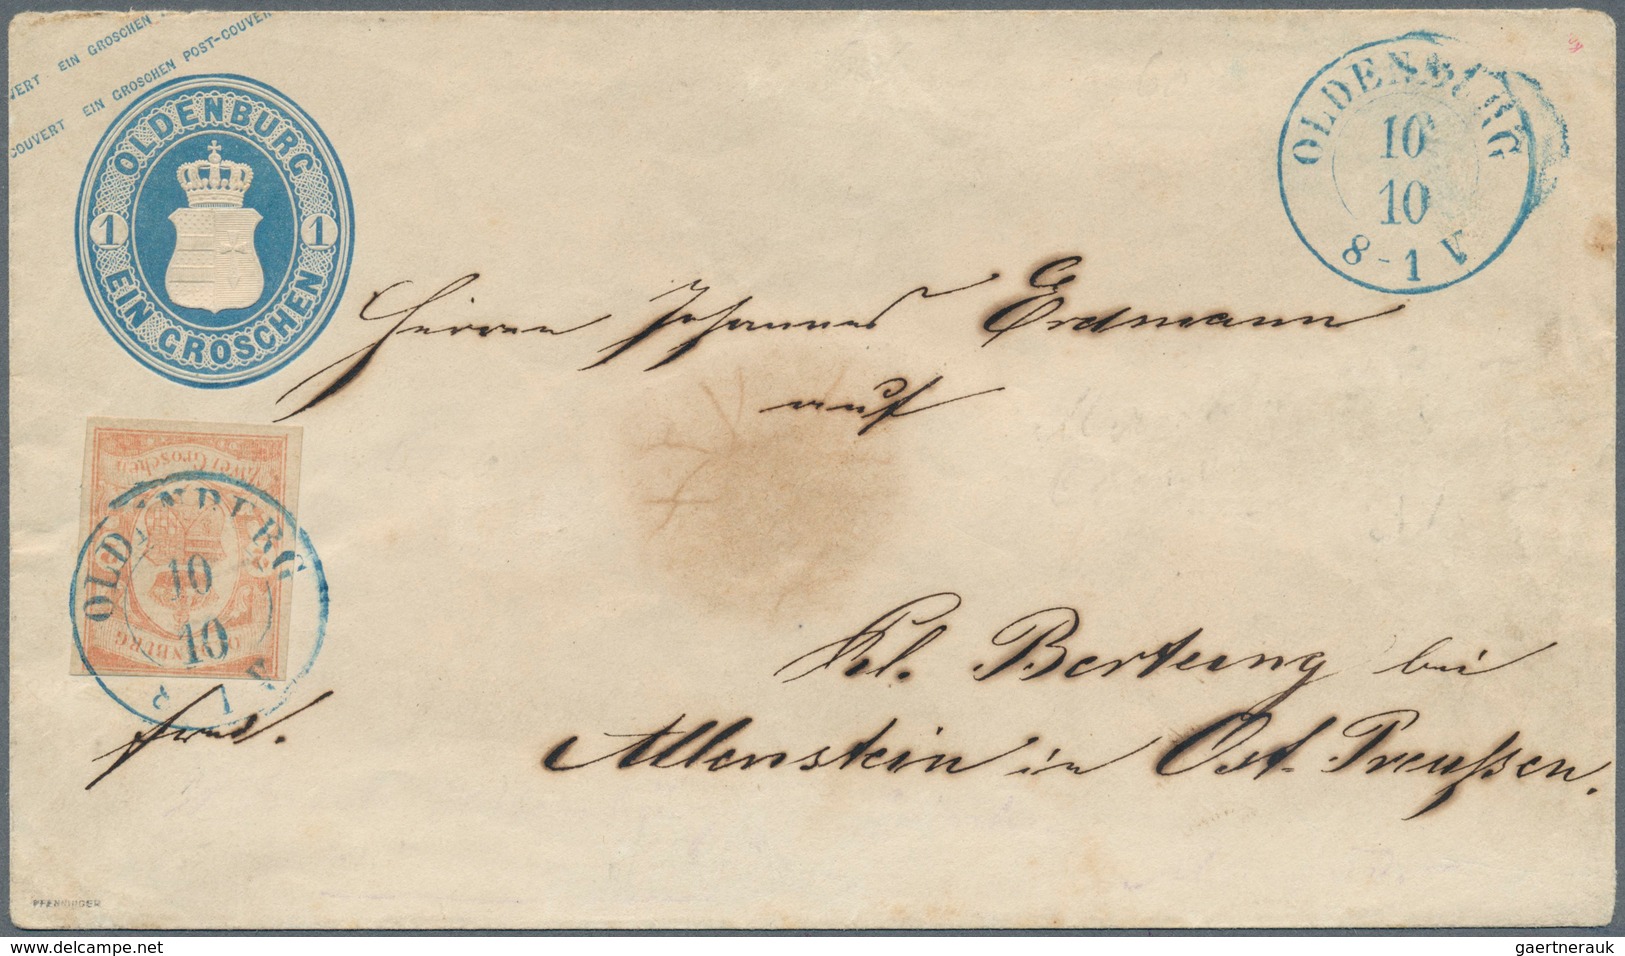 VERT EIN GROSCHEN
COUVERT EIN GROSCHEN POST-COUVER
OLDENBURG
1 1
EIN GROSCHEN
OLDENBURG
10
10
8-1 V
Herrn Johannes Erdmann
auf
Kl. Bertung bei
Allenstein in Ost-Preußen.
Zwei Groschen
OLDENBURG
OLDENBURG
10
10
franco.
PFENNINGER
gaertnerauk
delcampe.net